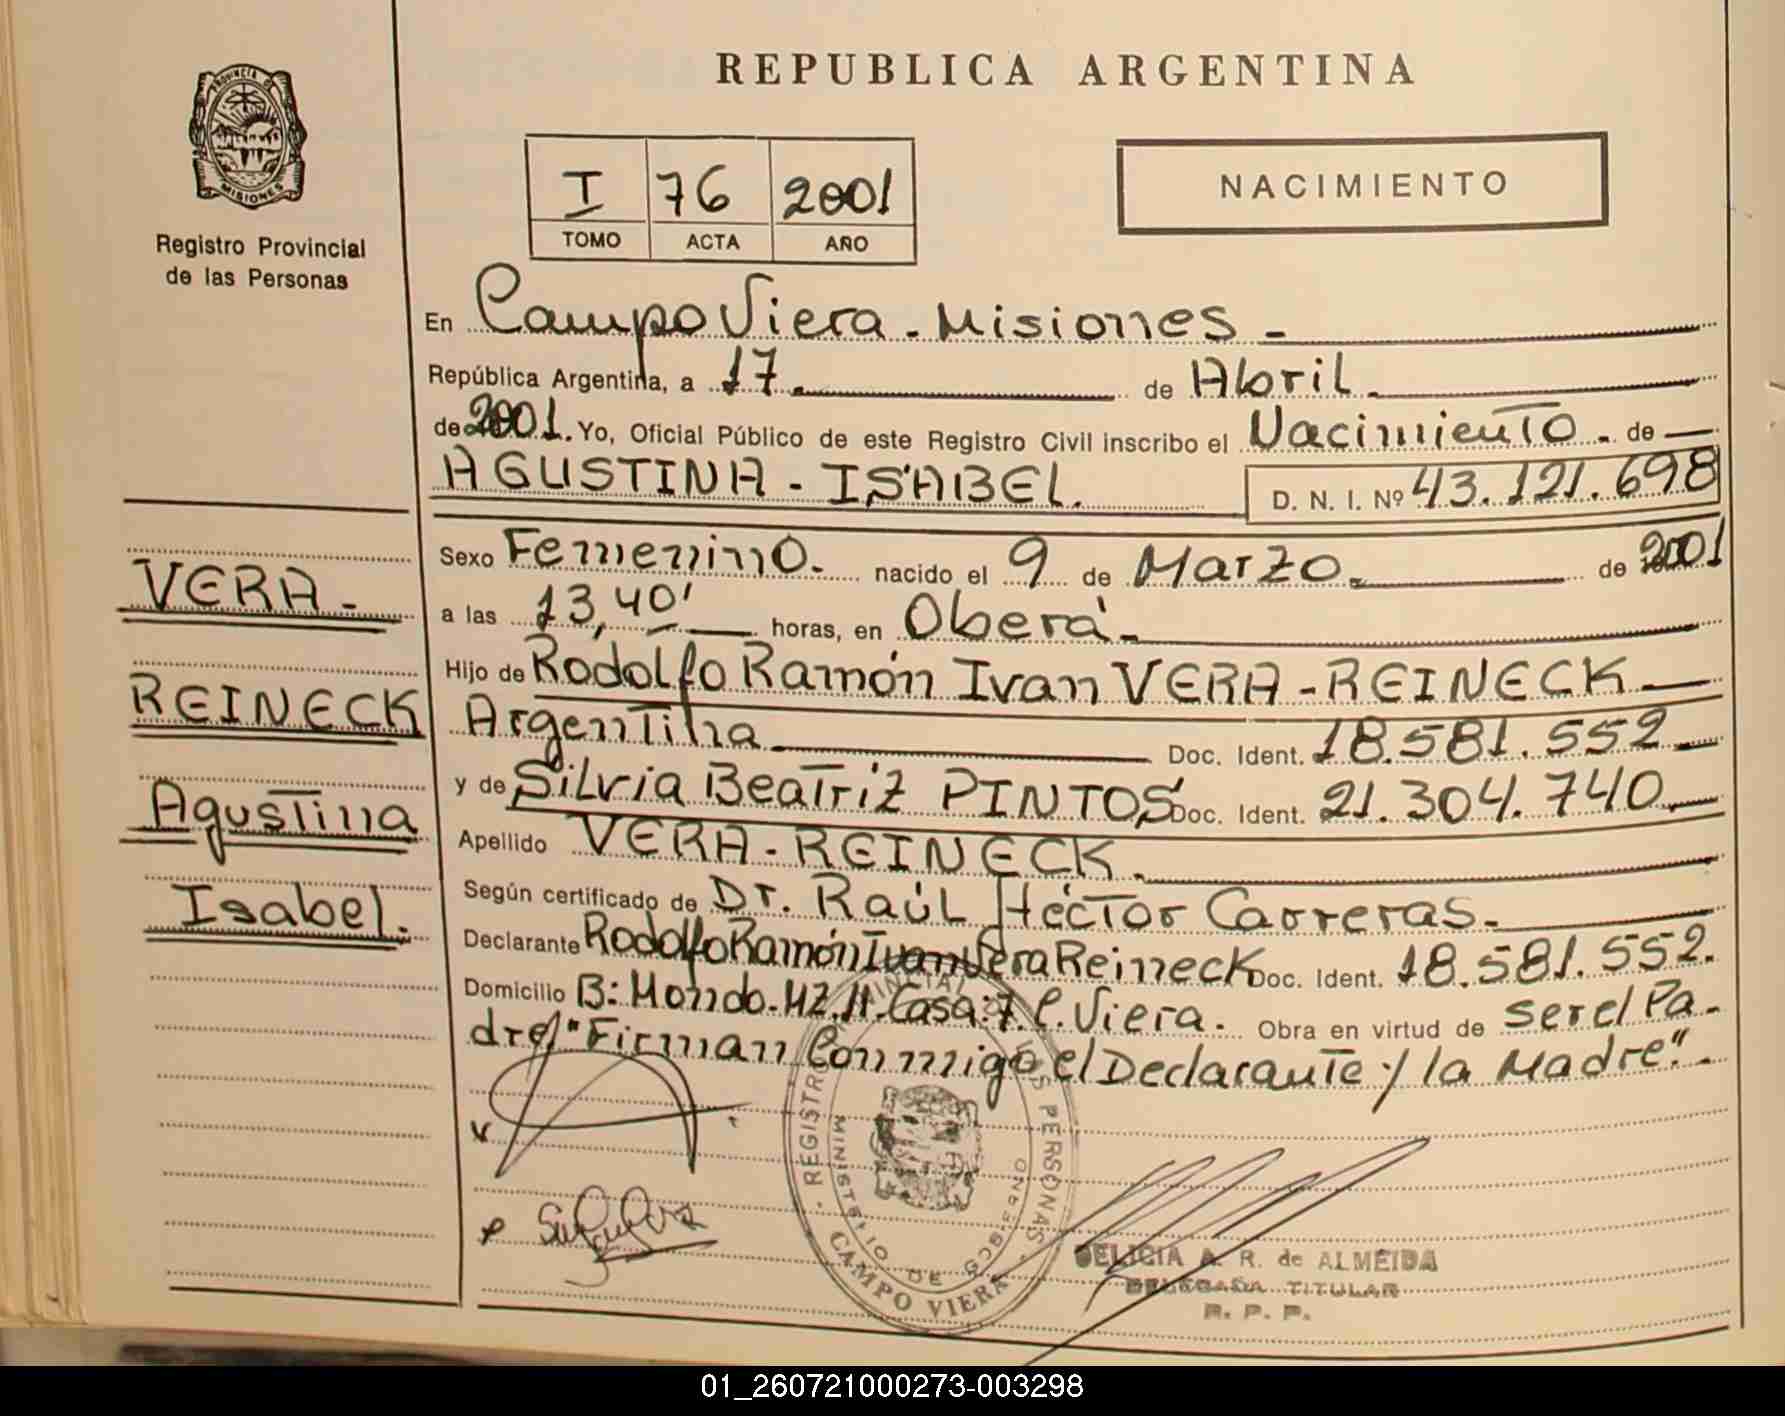 PROVINCIA DE
MISIONES
Registro Provincial
de las Personas
REPUBLICA ARGENTINA
I 76 2001
TOMO ACTA AÑO
NACIMIENTO
En Campo Viera - Misiones -
República Argentina, a 17. de Abril.
de 2001. Yo, Oficial Público de este Registro Civil inscribo el Nacimiento - de
AGUSTINA - ISABEL. D. N. I. Nº 43.121.698
Sexo Femenino. nacido el 9 de Marzo. de 2001
a las 13,40' horas, en Oberá -
Hijo de Rodolfo Ramón Ivan VERA - REINECK
Argentina Doc. Ident. 18.581.552
y de Silvia Beatriz PINTOS Doc. Ident. 21.304.740
Apellido VERA - REINECK.
Según certificado de Dr. Raúl Héctor Carreras.
Declarante Rodolfo Ramón Ivan Vera Reineck Doc. Ident. 18.581.552.
Domicilio B: Mondo. MZ. 11. Casa: 7. C. Viera. Obra en virtud de ser el Pa-
dre. "Firman Conmigo el Declarante y la Madre". -
VERA -
REINECK
Agustina
Isabel.
REGISTRO PROVINCIAL DE LAS PERSONAS
MINISTERIO DE GOBIERNO
CAMPO VIERA
DELICIA A. R. de ALMEIDA
DELEGADA TITULAR
R. P. P.
01_260721000273-003298